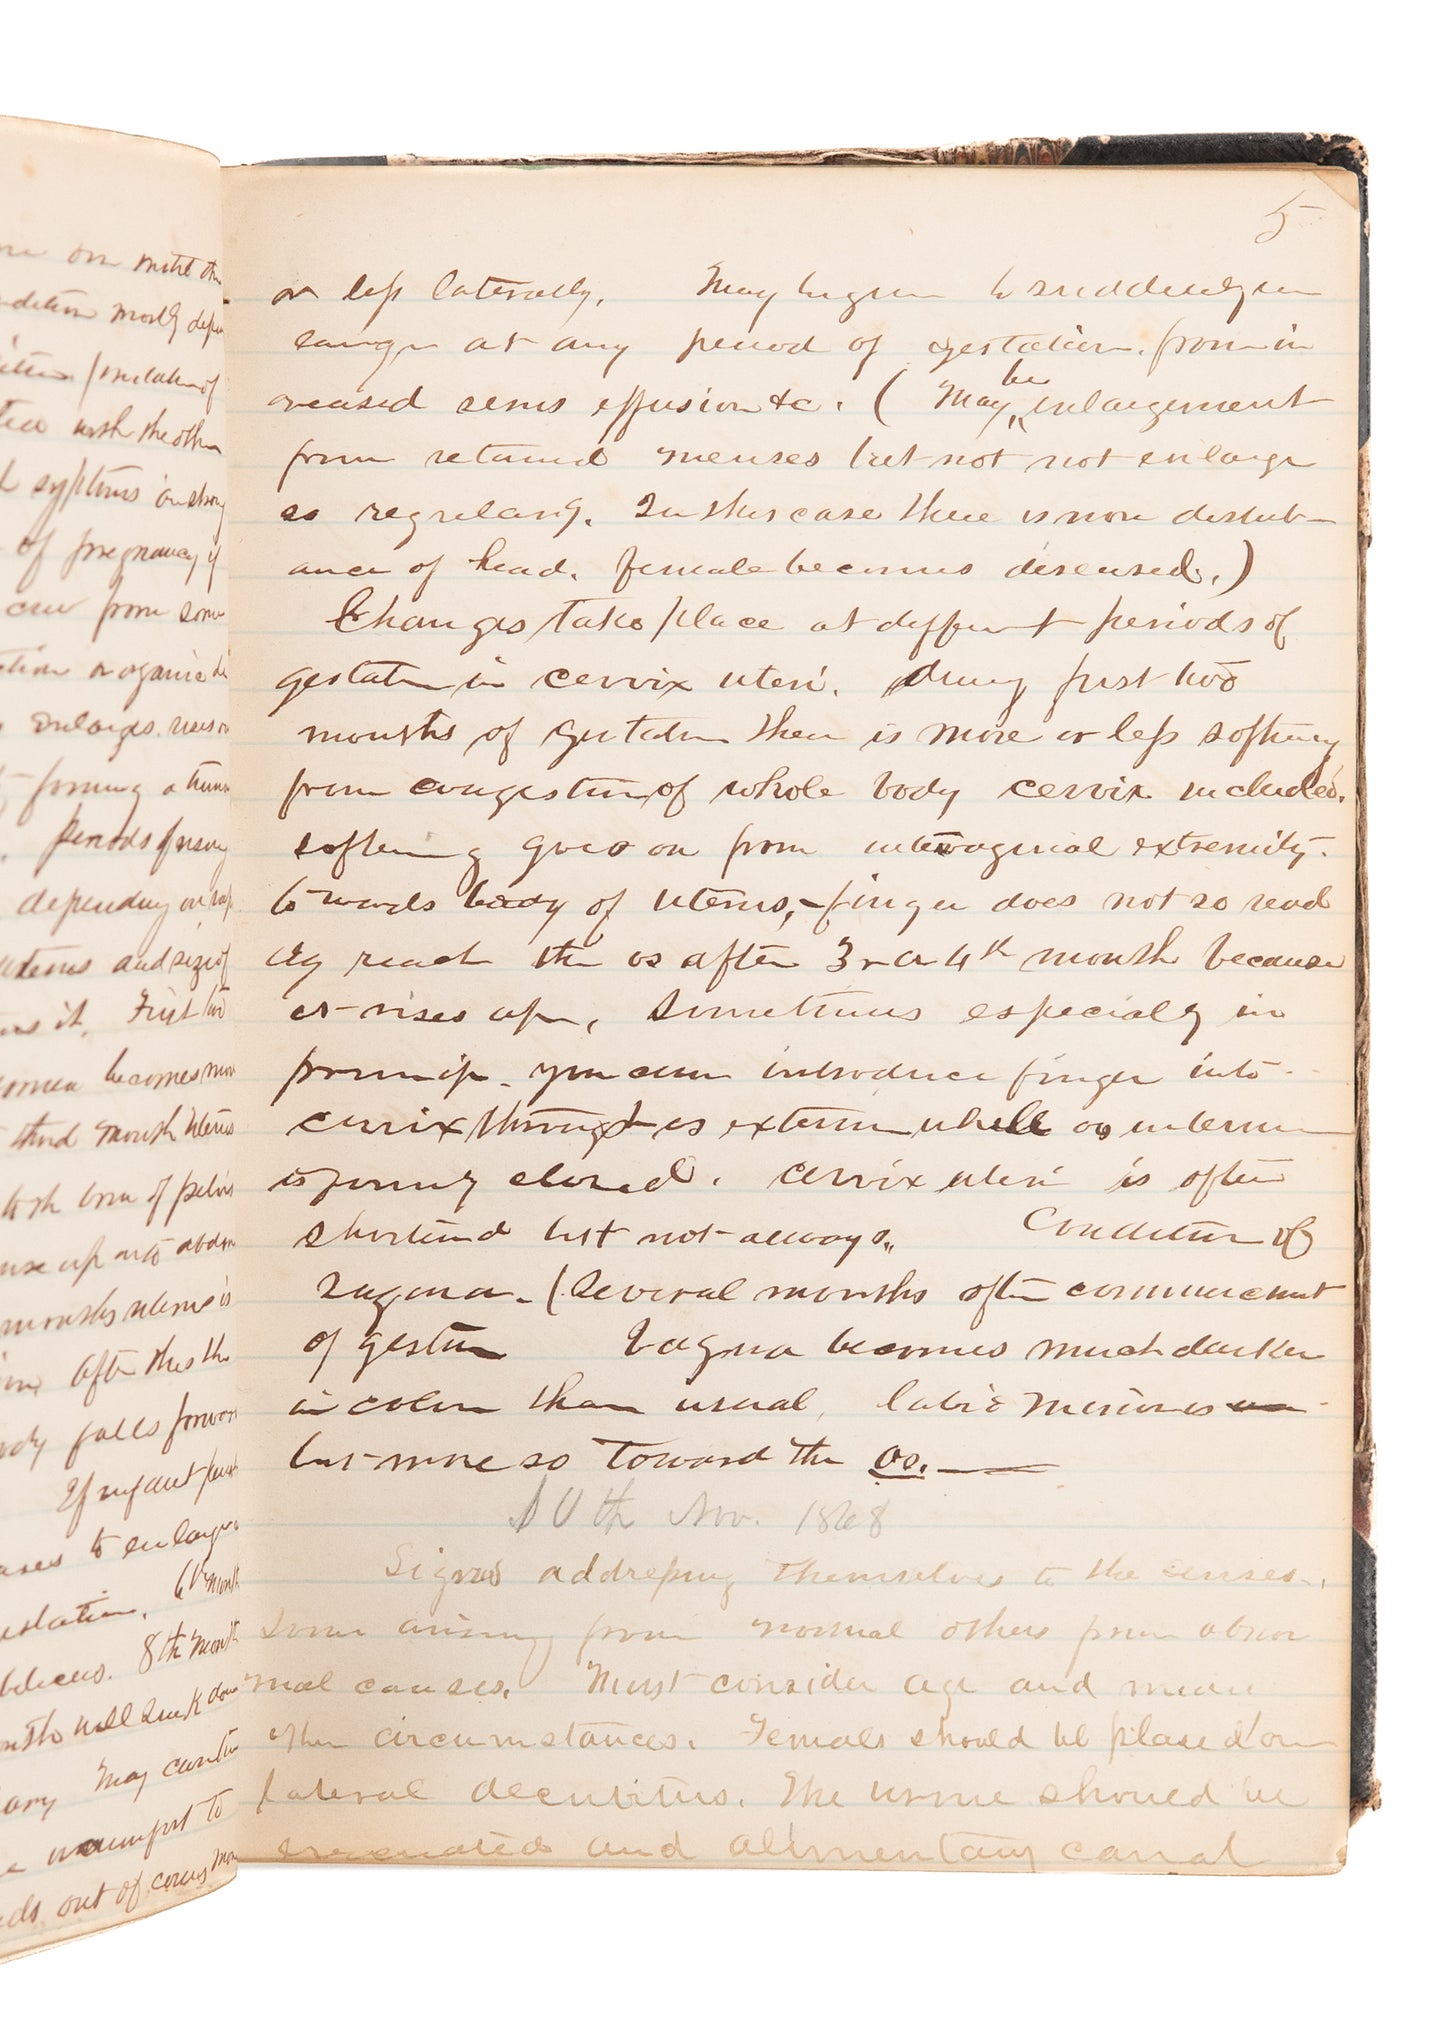 me on mitit the
ndition mostly depen
of
tice with the other
symptoms in strong
of pregnancy if
from some
tion or organic di
enlarges. rises
forming a tumor
Periods of
depending on
uterus and size of
ns it. First two
becomes more
third month uterus
to the brim of pelvis
rise up into abdom
months uterus is
After this the
ody falls forwar
If infant
ases to enlarge
estation. 6th month
bilicus. 8th month
nth will sink down
ary May contin
to
ds out of more
5
or less laterally. May begin to suddenly en
large at any period of gestation. from in
creased serus effusion &c. (May be enlargement
from retained menses but not not enlarge
so regularly. In this case there is more disturb-
ance of head. female becomes diseased.)
Changes take place at different periods of
gestatn in cervix uteri. During first two
months of gestation there is more or less softning
from congestion of whole body cervix included.
softening goes on from intravaginal extremity.
towards body of uterus, - finger does not so read
ily reach the os after 3r or 4th month because
it rises up, Sometimes especialy in
you can introduce finger into
cervix through os extern while os internum
is firmly closed. Cervix uteri is often
shortend but not always. Condition of
vagina. (Several months after commencement
of gestn Vagina becomes much darker
in color than usual, labia minores
but more so toward the os.
10th Nov. 1868
Signs addressing themselves to the senses.
Some arising from normal others from abnor
mal causes. Must consider age and many
other circumstances. Female should be placed on
lateral decubitus. The urine should be
evacuated and alimentary canal